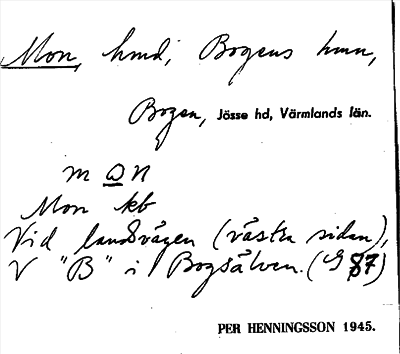 Mon, hmd; Bogens hmn,
Bogen, Jösse hd, Värmlands län.
m ꞷ n
Mon kb
Vid landsvägen (västra sidan),
V "B" i Bogsälven. (G 87)
PER HENNINGSSON 1945.